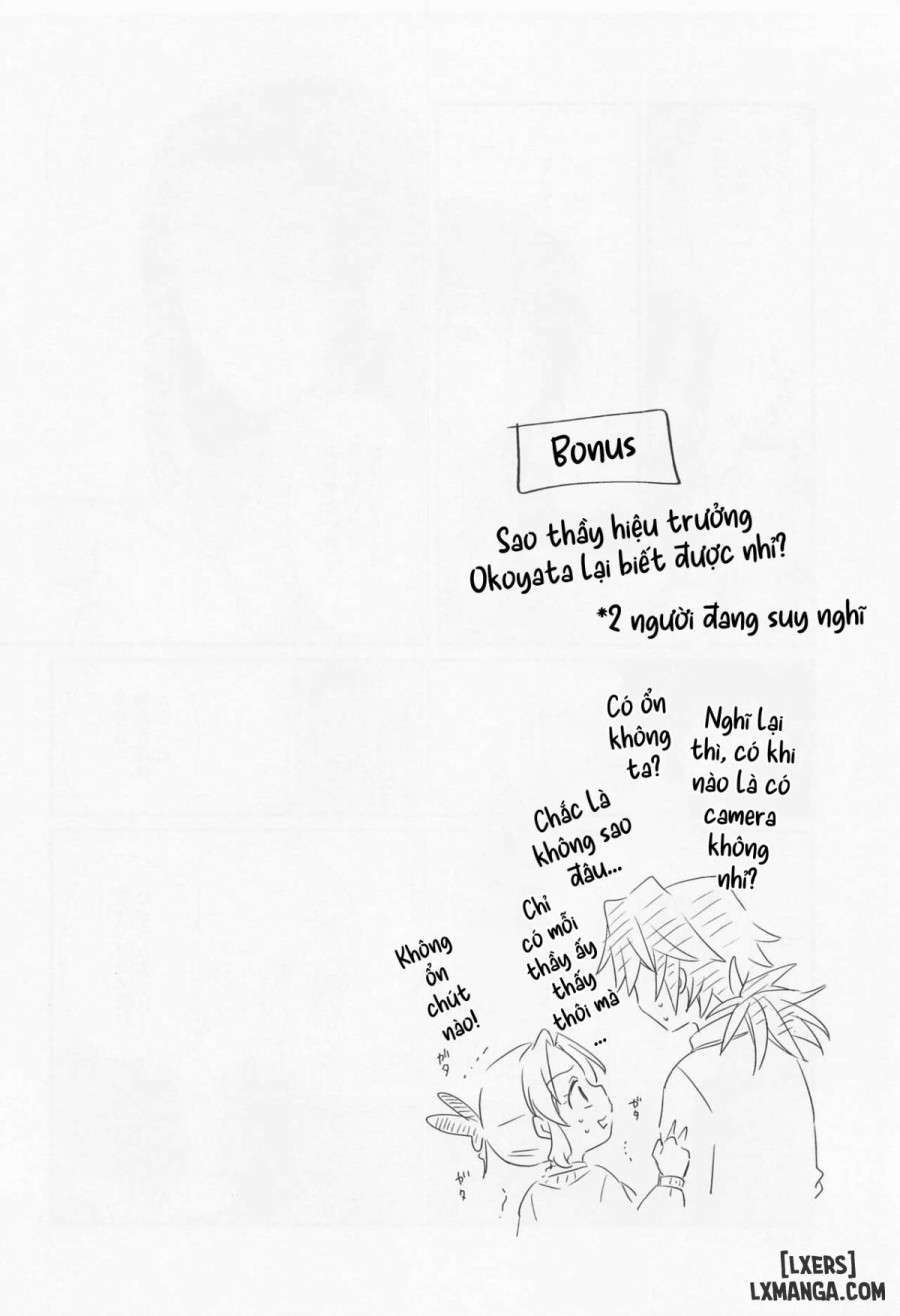 Bonus
Sao thầy hiệu trưởng
Okoyata lại biết được nhỉ?
*2 người đang suy nghĩ
Nghĩ lại
thì, có khi
nào là có
camera
không
nhỉ?
Có ổn
không
ta?
Chắc là
không sao
đâu...
Chỉ
có mỗi
thầy ấy
thấy
thôi mà
...
Không
ổn
chút
nào!
ガタ
ガタ
ガタ
[LXERS]
LXMANGA.COM